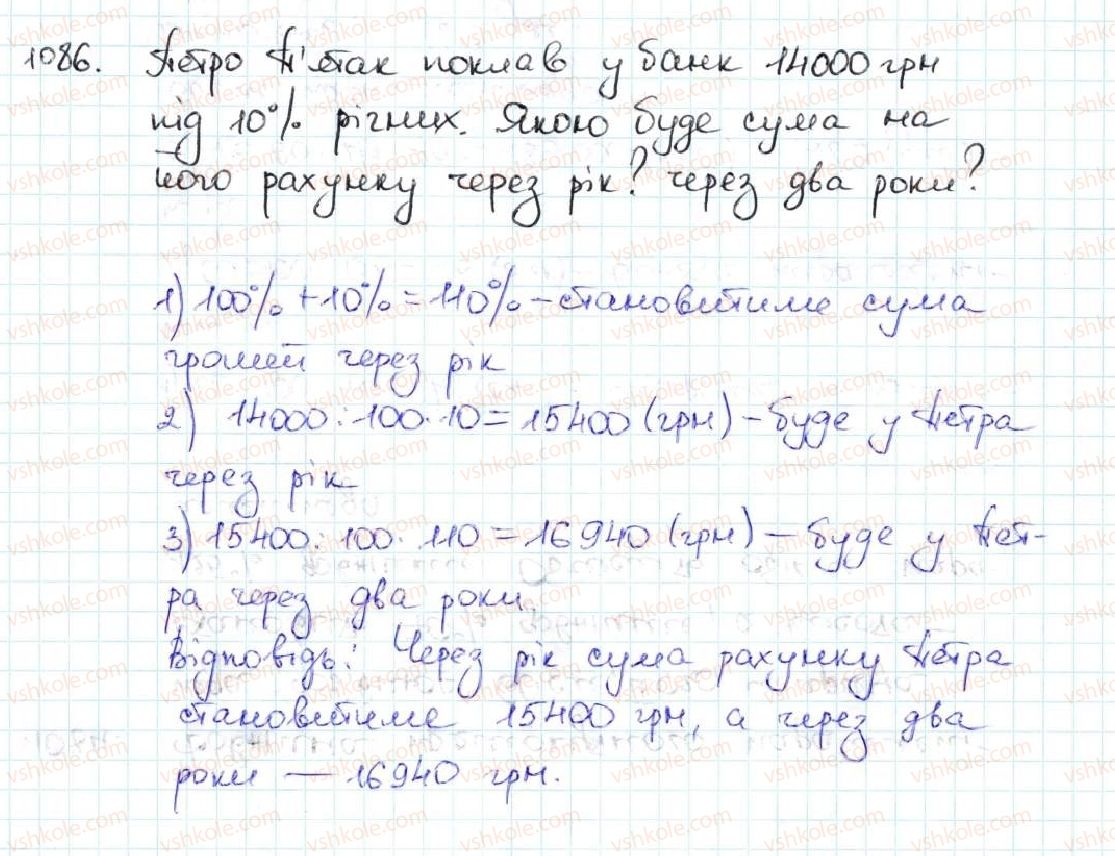 1086. Петро П'ятак поклав у банк 14000 грн
під 10% річних. Якою буде сума на
його рахунку через рік? через два роки?
1) 100% + 10% = 110% – становитиме сума
грошей через рік
2) 14000 : 100 · 10 = 15400 (грн) – буде у Петра
через рік
3) 15400 : 100 · 110 = 16940 (грн) – буде у Пет-
ра через два роки.
Відповідь: Через рік сума рахунку Петра
становитиме 15400 грн, а через два
роки — 16940 грн.